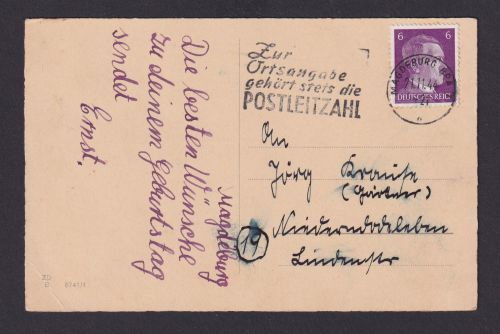 Magdeburg
Die besten Wünsche
zu deinem Geburtstag
sendet
Ernst.
Zur
Ortsangabe
gehört stets die
POSTLEITZAHL
6 6
DEUTSCHES REICH
MAGDEBURG
21.11.44
n
An
Jörg Krause
(Gärtner)
19
Niederndodeleben
Lindenstr